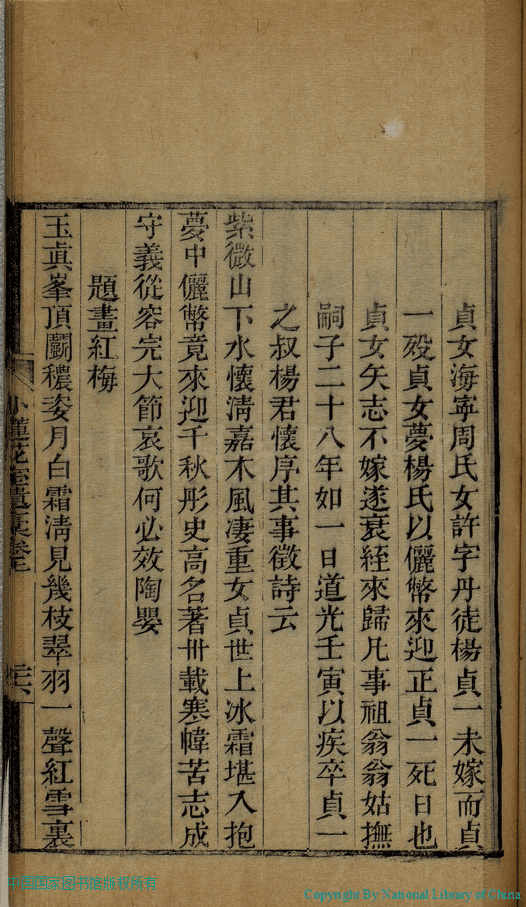 貞女海寧周氏女許字丹徒楊貞一未嫁而貞
一歿貞女夢楊氏以儷幣來迎正貞一死日也
貞女矢志不嫁遂衰絰來歸凡事祖翁翁姑撫
嗣子二十八年如一日道光壬寅以疾卒貞一
之叔楊君懷序其事徵詩云
紫薇山下水懷淸嘉木風凄重女貞世上冰霜堪入抱
夢中儷幣竟來迎千秋彤史高名著卅載寒幃苦志成
守義從容完大節哀歌何必效陶嬰
題畫紅梅
玉眞峯頂鬭穠姿月白霜淸見幾枝翠羽一聲紅雪裏
小蓮花室遺稾卷上
中国国家图书馆版权所有
Copyright By National Library of China